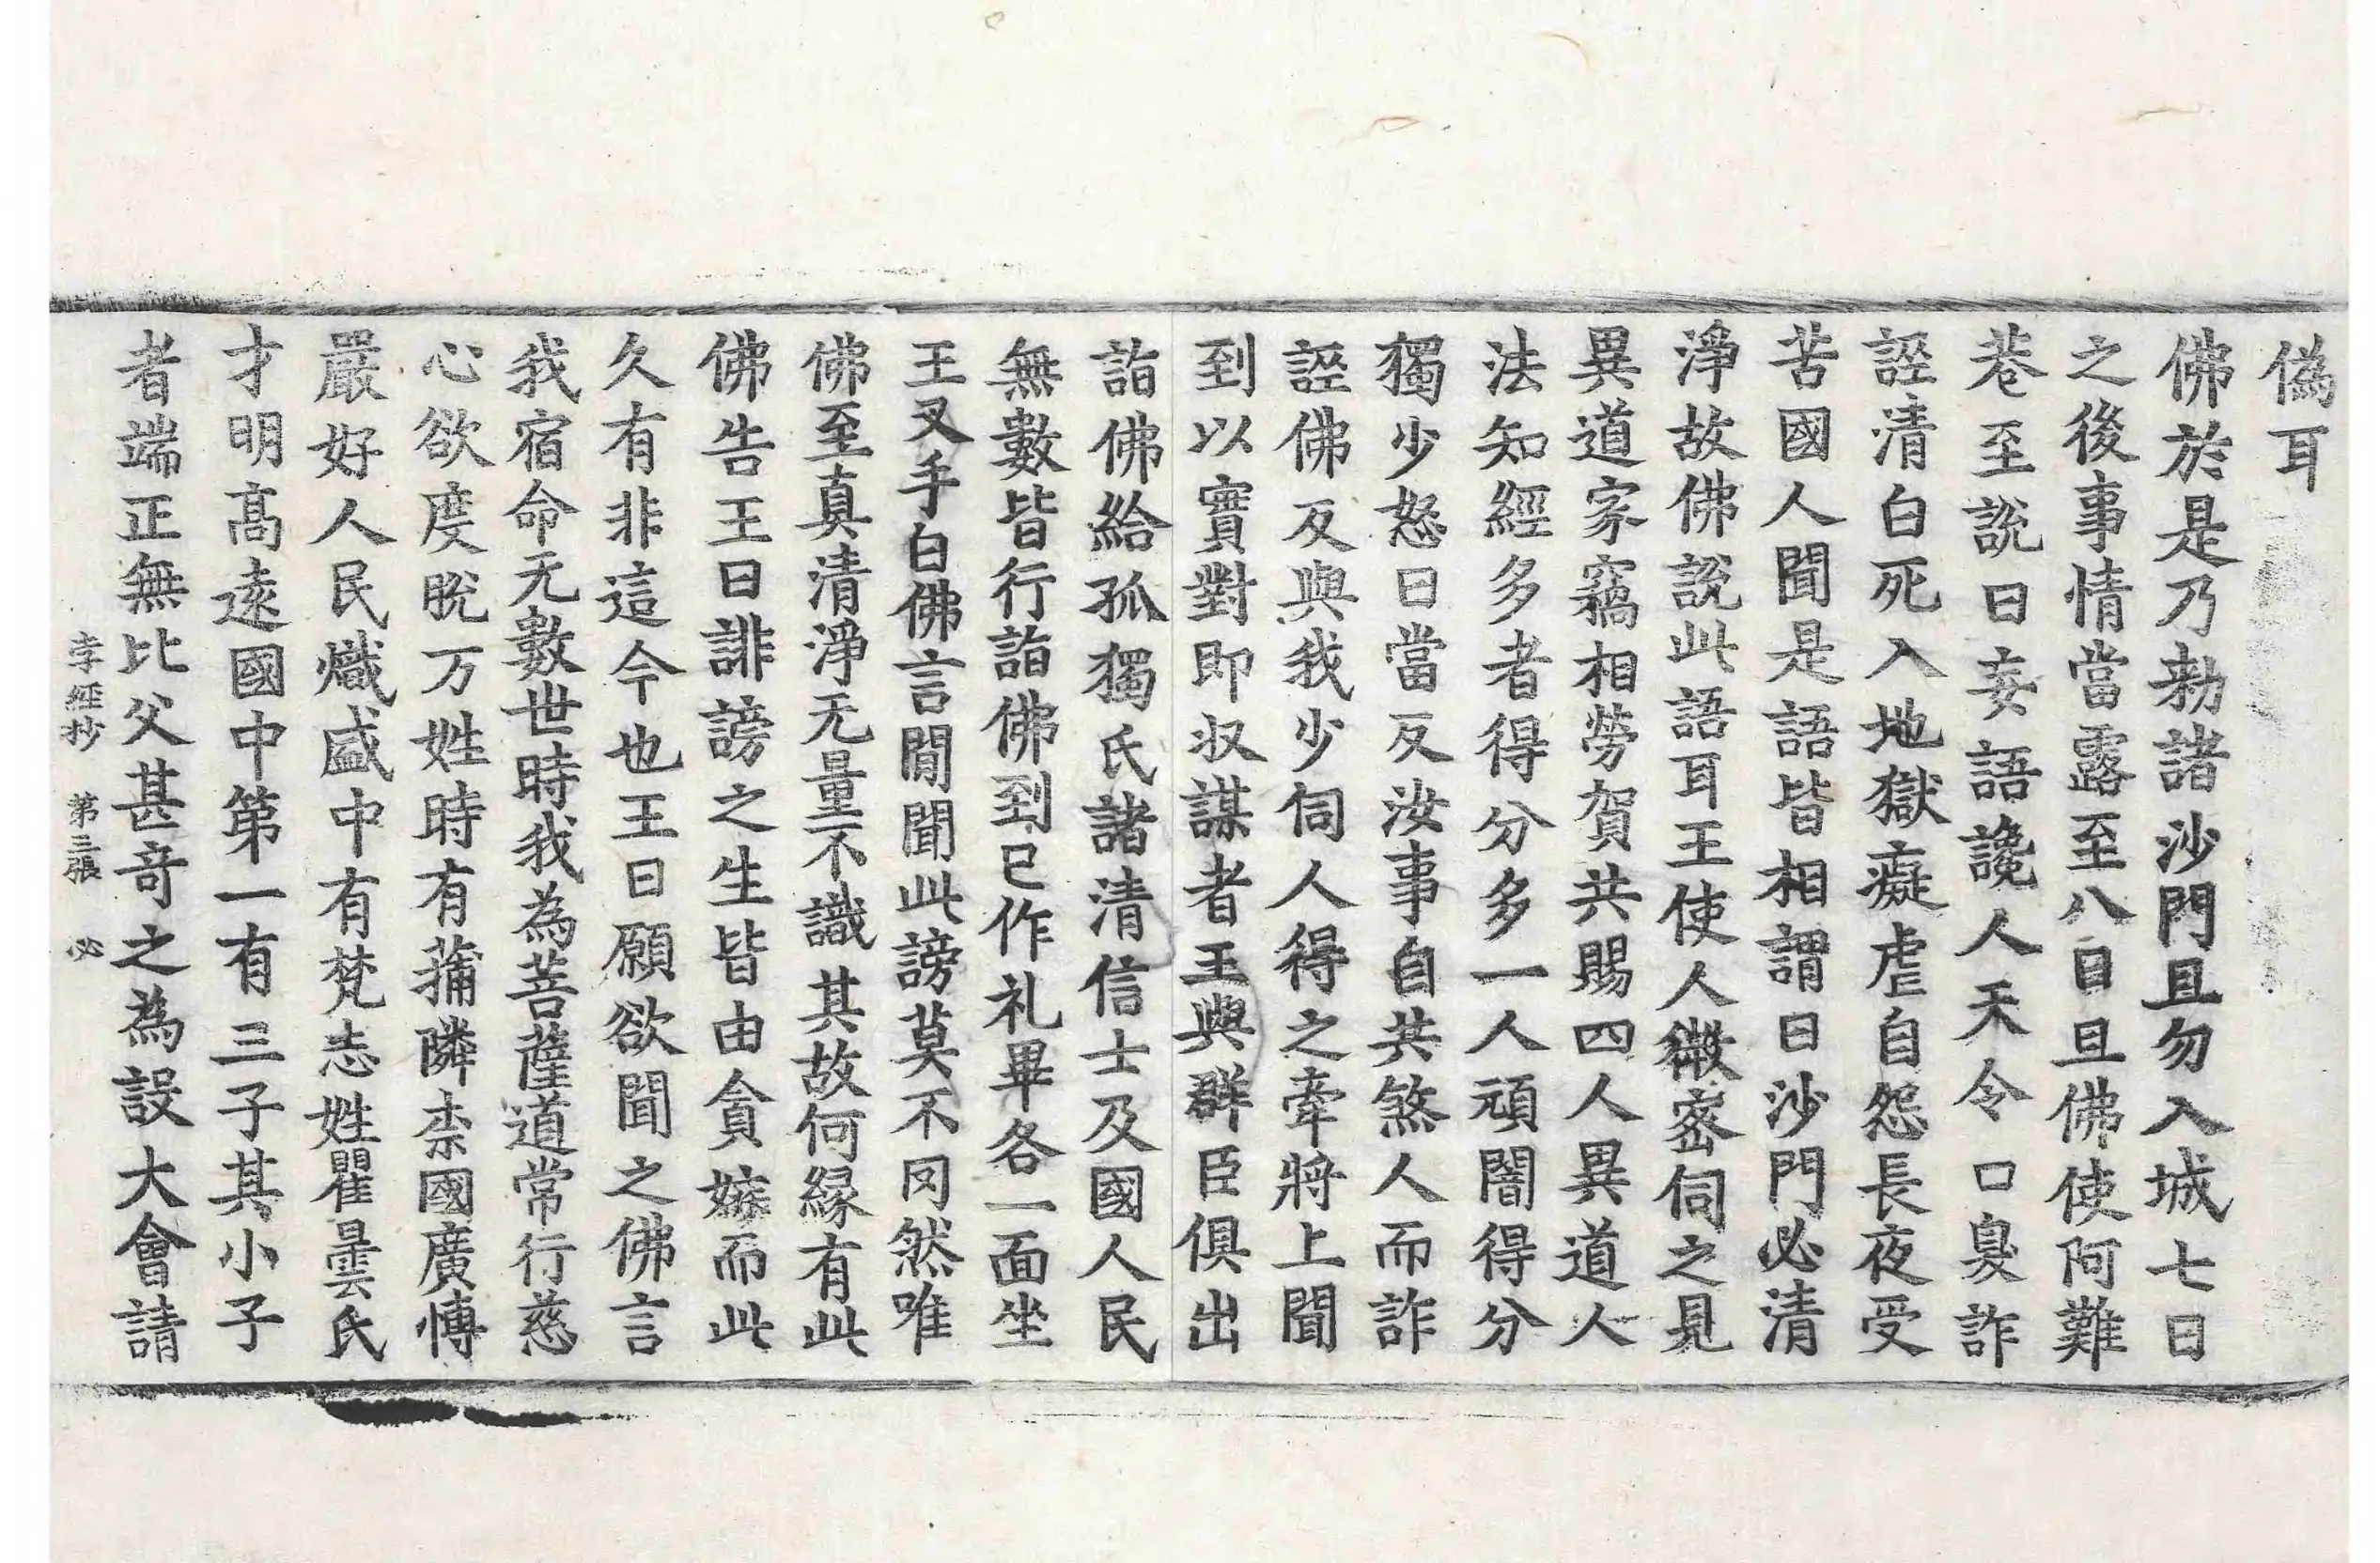 偽耳
佛於是乃勑諸沙門且勿入城七日
之後事情當露至八日旦佛使阿難
巷至說曰妄語讒人天令口臭詐
誣清白死入地獄癡虐自怨長夜受
苦國人聞是語皆相謂曰沙門必清
淨故佛說此語耳王使人微密伺之見
異道家竊相勞賀共賜四人異道人
法知經多者得分多一人頑闇得分
獨少怒曰當反汝事自共煞人而詐
誣佛反與我少伺人得之牽將上聞
到以實對即収謀者王與群臣俱出
詣佛給孤獨氏諸清信士及國人民
無數皆行詣佛到已作礼畢各一面坐
王叉手白佛言閒聞此謗莫不罔然唯
佛至真清淨无量不識其故何緣有此
佛告王曰誹謗之生皆由貪嫉而此
久有非這今也王曰願欲聞之佛言
我宿命无數世時我為菩薩道常行慈
心欲度脫万姓時有蒱隣柰國廣博
嚴好人民熾盛中有梵志姓瞿曇氏
才明高遠國中第一有三子其小子
者端正無比父甚奇之為設大會請
孛經抄　第三張　必